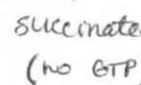 succinate
(no GTP